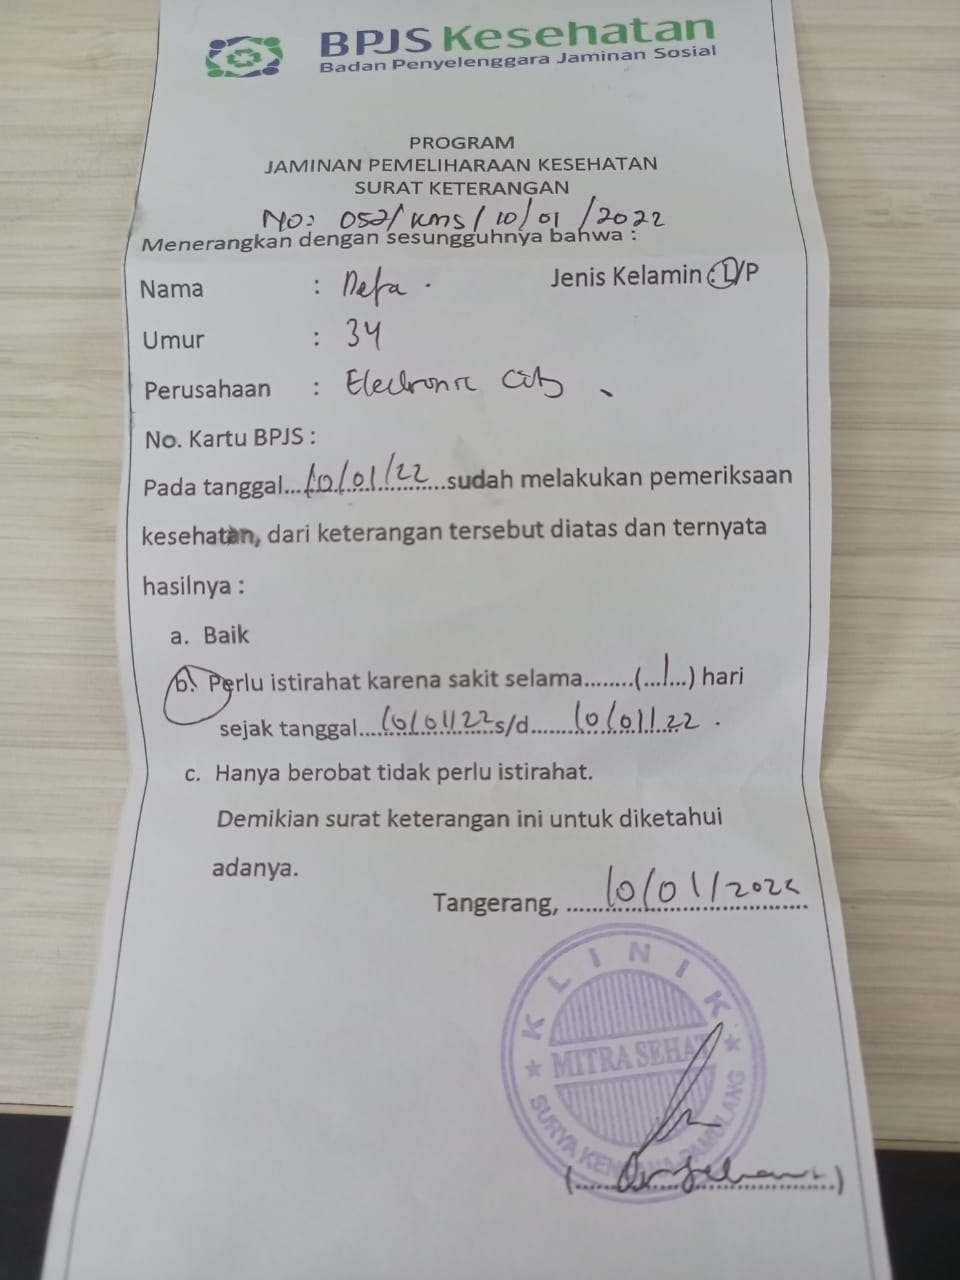 BPJS Kesehatan
Badan Penyelenggara Jaminan Sosial
PROGRAM
JAMINAN PEMELIHARAAN KESEHATAN
SURAT KETERANGAN
No: 052/KMS/10/01/2022
Menerangkan dengan sesungguhnya bahwa :
Nama : Defa. Jenis Kelamin : L/P
Umur : 34
Perusahaan : Electronic City
No. Kartu BPJS :
Pada tanggal...10/01/22...sudah melakukan pemeriksaan
kesehatan, dari keterangan tersebut diatas dan ternyata
hasilnya :
a. Baik
b. Perlu istirahat karena sakit selama........(...1...) hari
sejak tanggal....10/01/22 s/d.......10/01/22.
c. Hanya berobat tidak perlu istirahat.
Demikian surat keterangan ini untuk diketahui
adanya.
Tangerang, ......10/01/2022
KLINIK
MITRA SEHAT
SURYA KENCANA PAMULANG